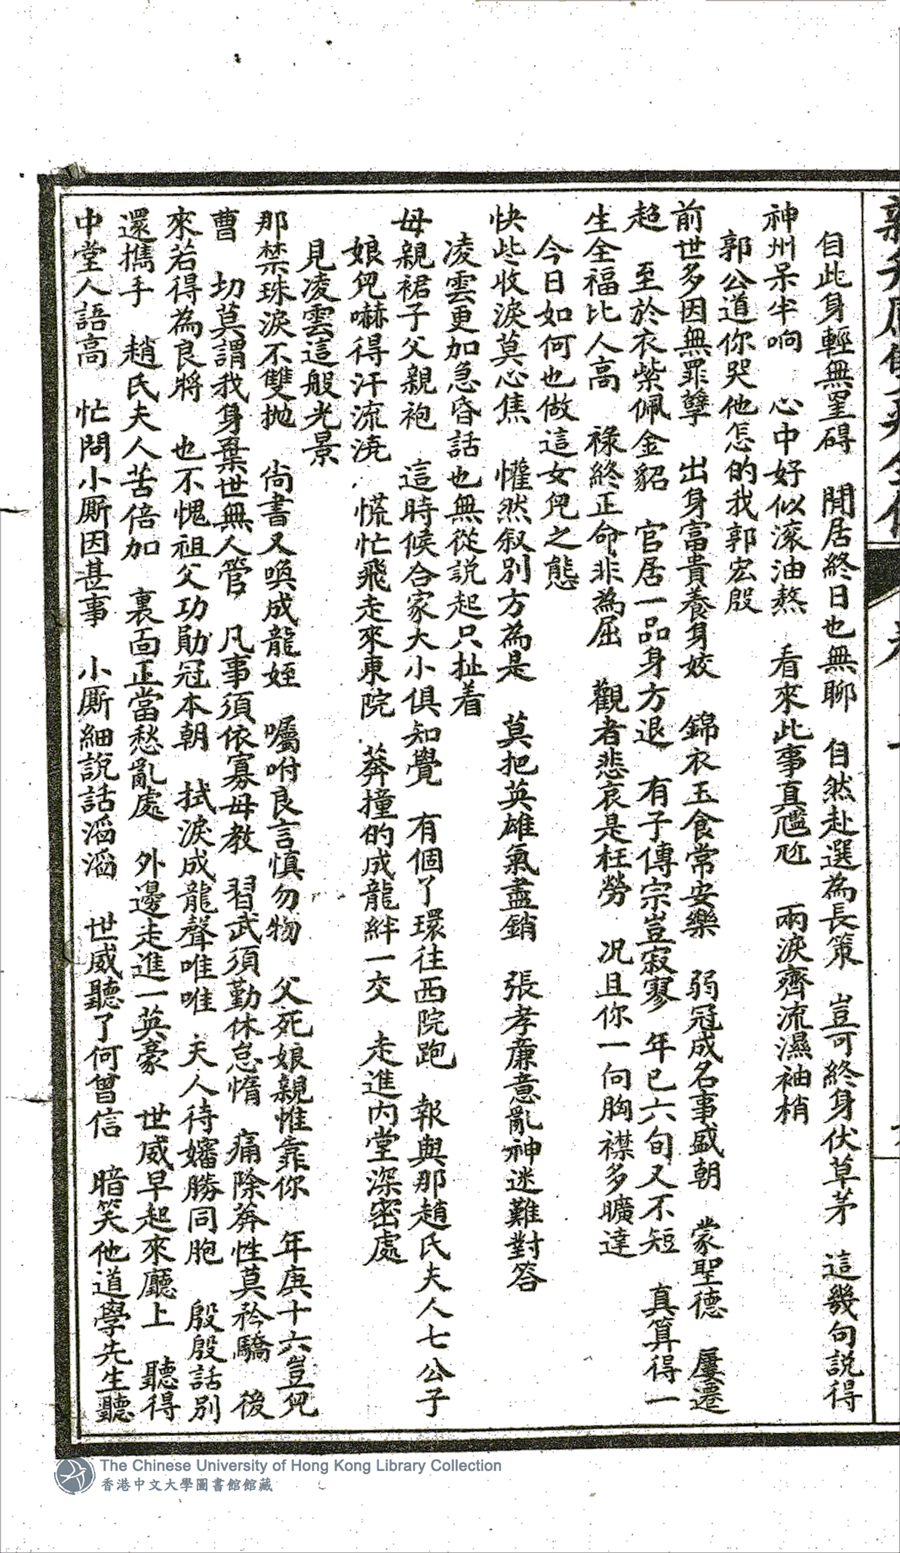 自此身輕無罣碍　閒居終日也無聊　自然赴選為長策　豈可終身伏草茅　這幾句説得
神州呆半响　心中好似滚油熬　看來此事真尶尬　兩淚齊流濕袖梢
郭公道你哭他怎的我郭宏殷
前世多因無罪孽　出身富貴養身姣　錦衣玉食常安樂　弱冠成名事盛朝　蒙聖德　屢遷
超　至於衣紫佩金貂　官居一品身方退　有子傳宗豈寂寥　年已六旬又不短　真算得一
生全福比人高　祿終正命非為屈　觀者悲哀是枉勞　况且你一向胸襟多曠達
今日如何也做這女兒之態
快些收淚莫心焦　懽然叙别方為是　莫把英雄氣盡銷　張孝廉意亂神迷難對答
凌雲更加急昏話也無從説起只扯着
母親裙子父親袍　這時候合家大小俱知覺　有個了環往西院跑　報與那趙氏夫人七公子
娘兒嚇得汗流澆　慌忙飛走來東院　莽撞的成龍絆一交　走進内堂深密處
見凌雲這般光景
那禁珠淚不雙抛　尚書又喚成龍姪　囑咐良言慎勿物　父死娘親惟靠你　年庚十六豈兒
曹　切莫謂我身棄世無人管　凡事須依寡母教　習武須勤休怠惰　痛除莽性莫矜驕　後
來若得為良將　也不愧祖父功勛冠本朝　拭淚成龍聲唯唯　夫人待嬸勝同胞　殷殷話别
還携手　趙氏夫人苦倍加　裏面正當愁亂處　外邊走進一英豪　世威早起來廳上　聽得
中堂人語高　忙問小厮因甚事　小厮細說話滔滔　世威聽了何曾信　暗笑他道學先生聽
The Chinese University of Hong Kong Library Collection
香港中文大學圖書館館藏